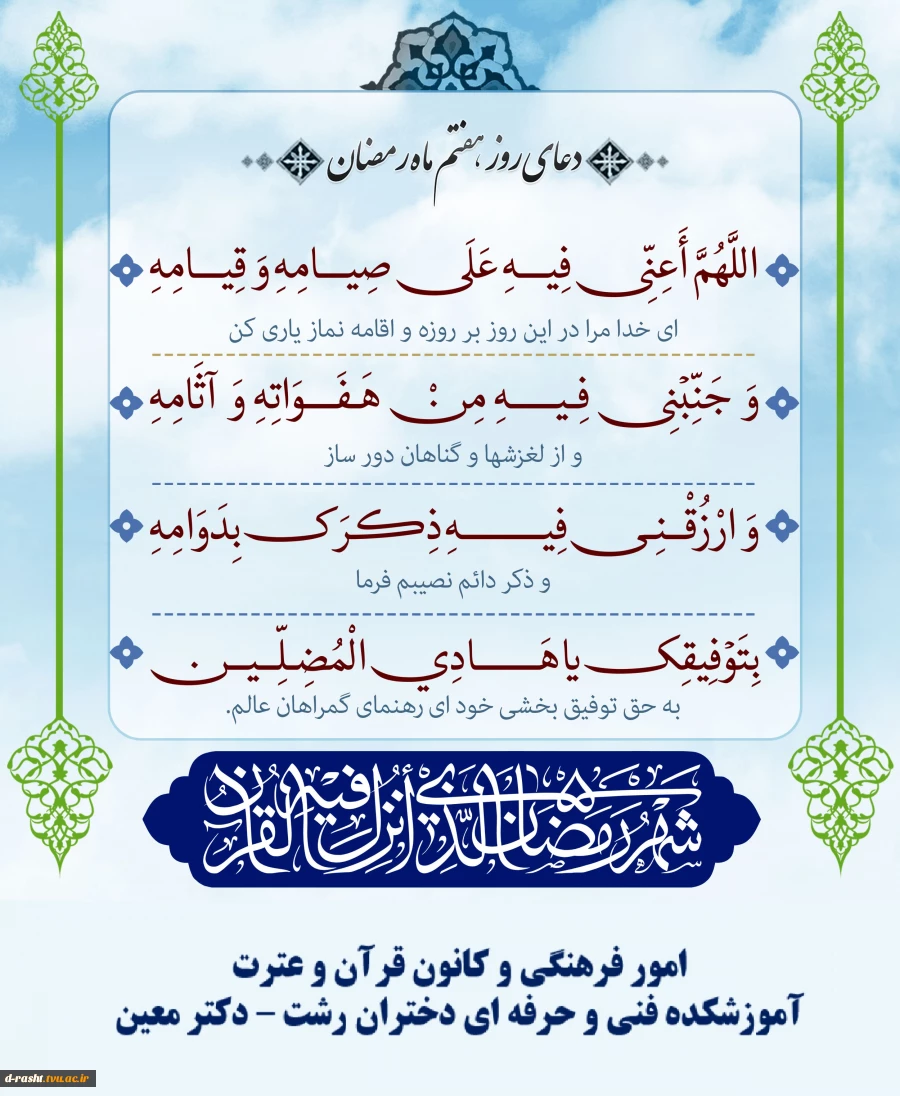 دعای روز هفتم ماه رمضان
اللَّهُمَّ أَعِنِّي فِيهِ عَلَى صِيامِهِ وَ قِيامِهِ
ای خدا مرا در این روز بر روزه و اقامه نماز یاری کن
وَ جَنِّبْنِي فِيهِ مِنْ هَفَوَاتِهِ وَ آثَامِهِ
و از لغزشها و گناهان دور ساز
وَ ارْزُقْنِي فِيهِ ذِكْرَكَ بِدَوَامِهِ
و ذکر دائم نصیبم فرما
بِتَوْفِيقِكَ يا هَادِي الْمُضِلِّينَ
به حق توفیق بخشی خود ای رهنمای گمراهان عالم.
شهر رمضان الذي أنزل فيه القرآن
امور فرهنگی و کانون قرآن و عترت
آموزشکده فنی و حرفه ای دختران رشت - دکتر معین
d-rasht.tvu.ac.ir